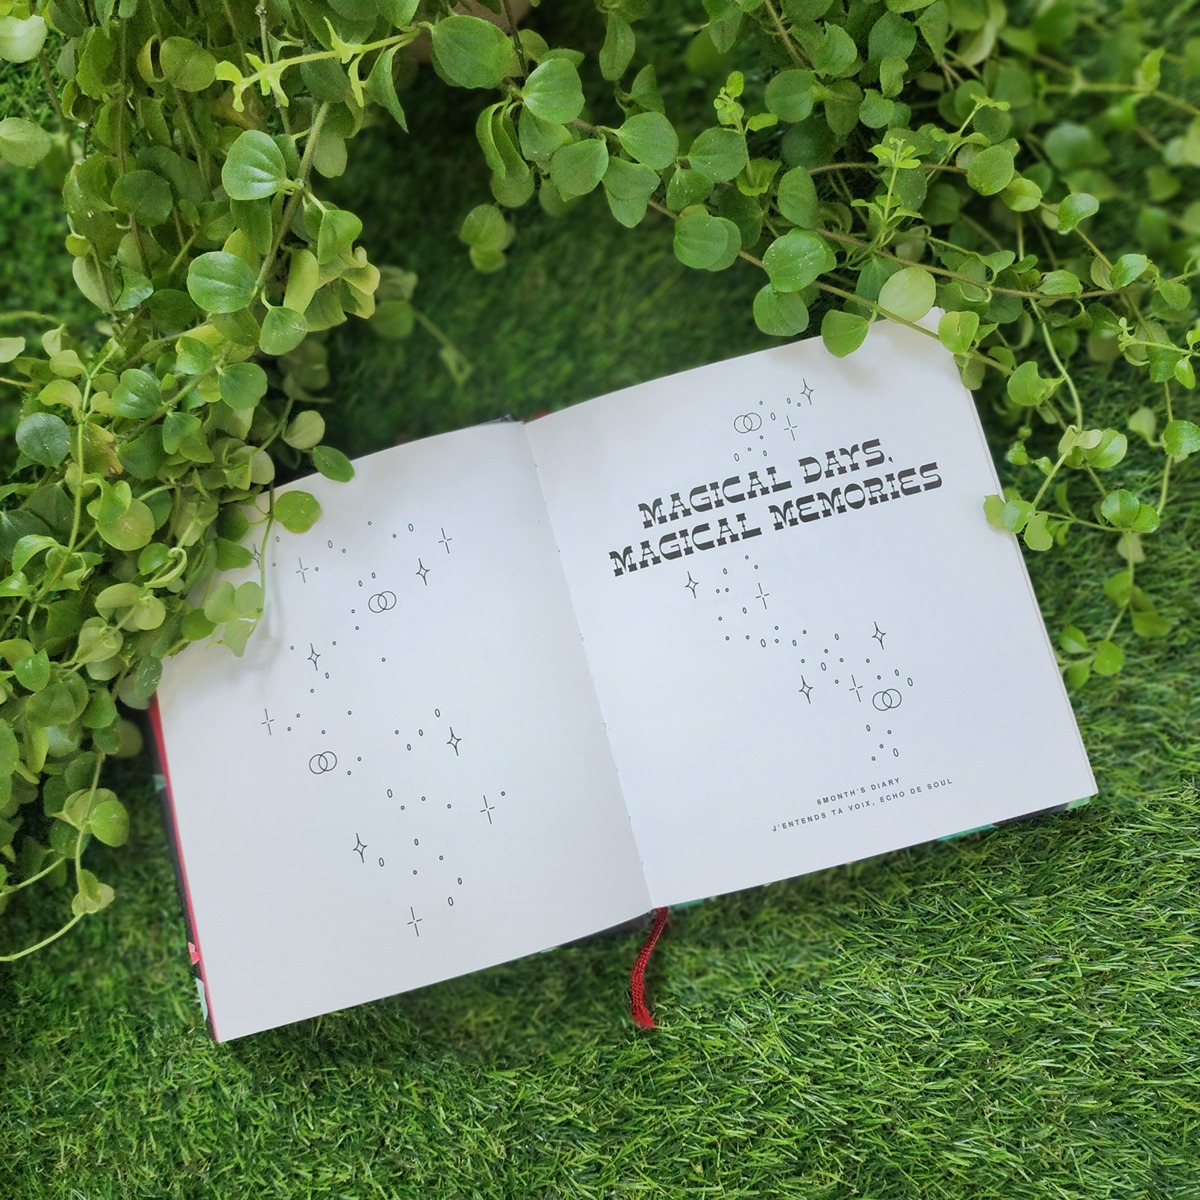 MAGICAL DAYS,
MAGICAL MEMORIES
6MONTH'S DIARY
J'ENTENDS TA VOIX, ECHO DE SOUL